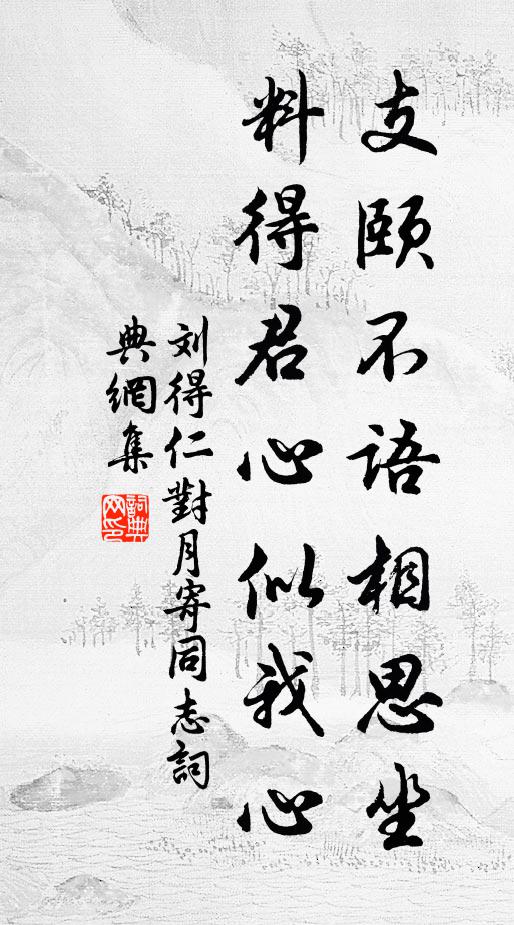 支頤不語相思坐
料得君心似我心
刘得仁對月寄同志詞
典網集
詞典网印